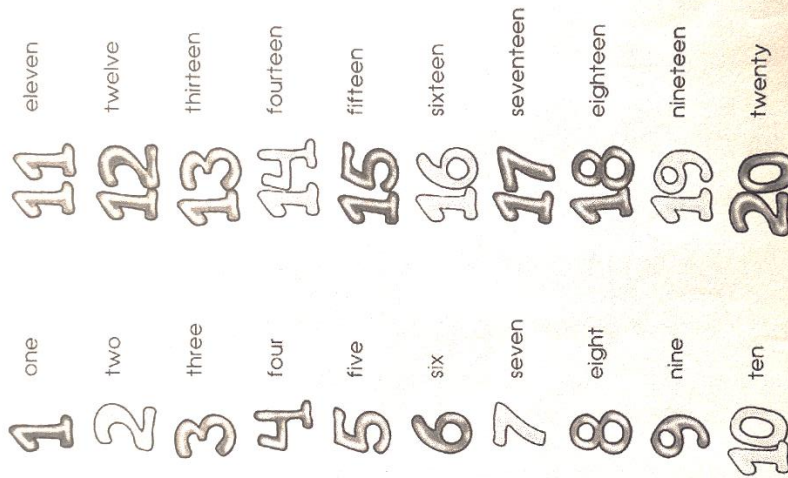 1 one
2 two
3 three
4 four
5 five
6 six
7 seven
8 eight
9 nine
10 ten
11 eleven
12 twelve
13 thirteen
14 fourteen
15 fifteen
16 sixteen
17 seventeen
18 eighteen
19 nineteen
20 twenty